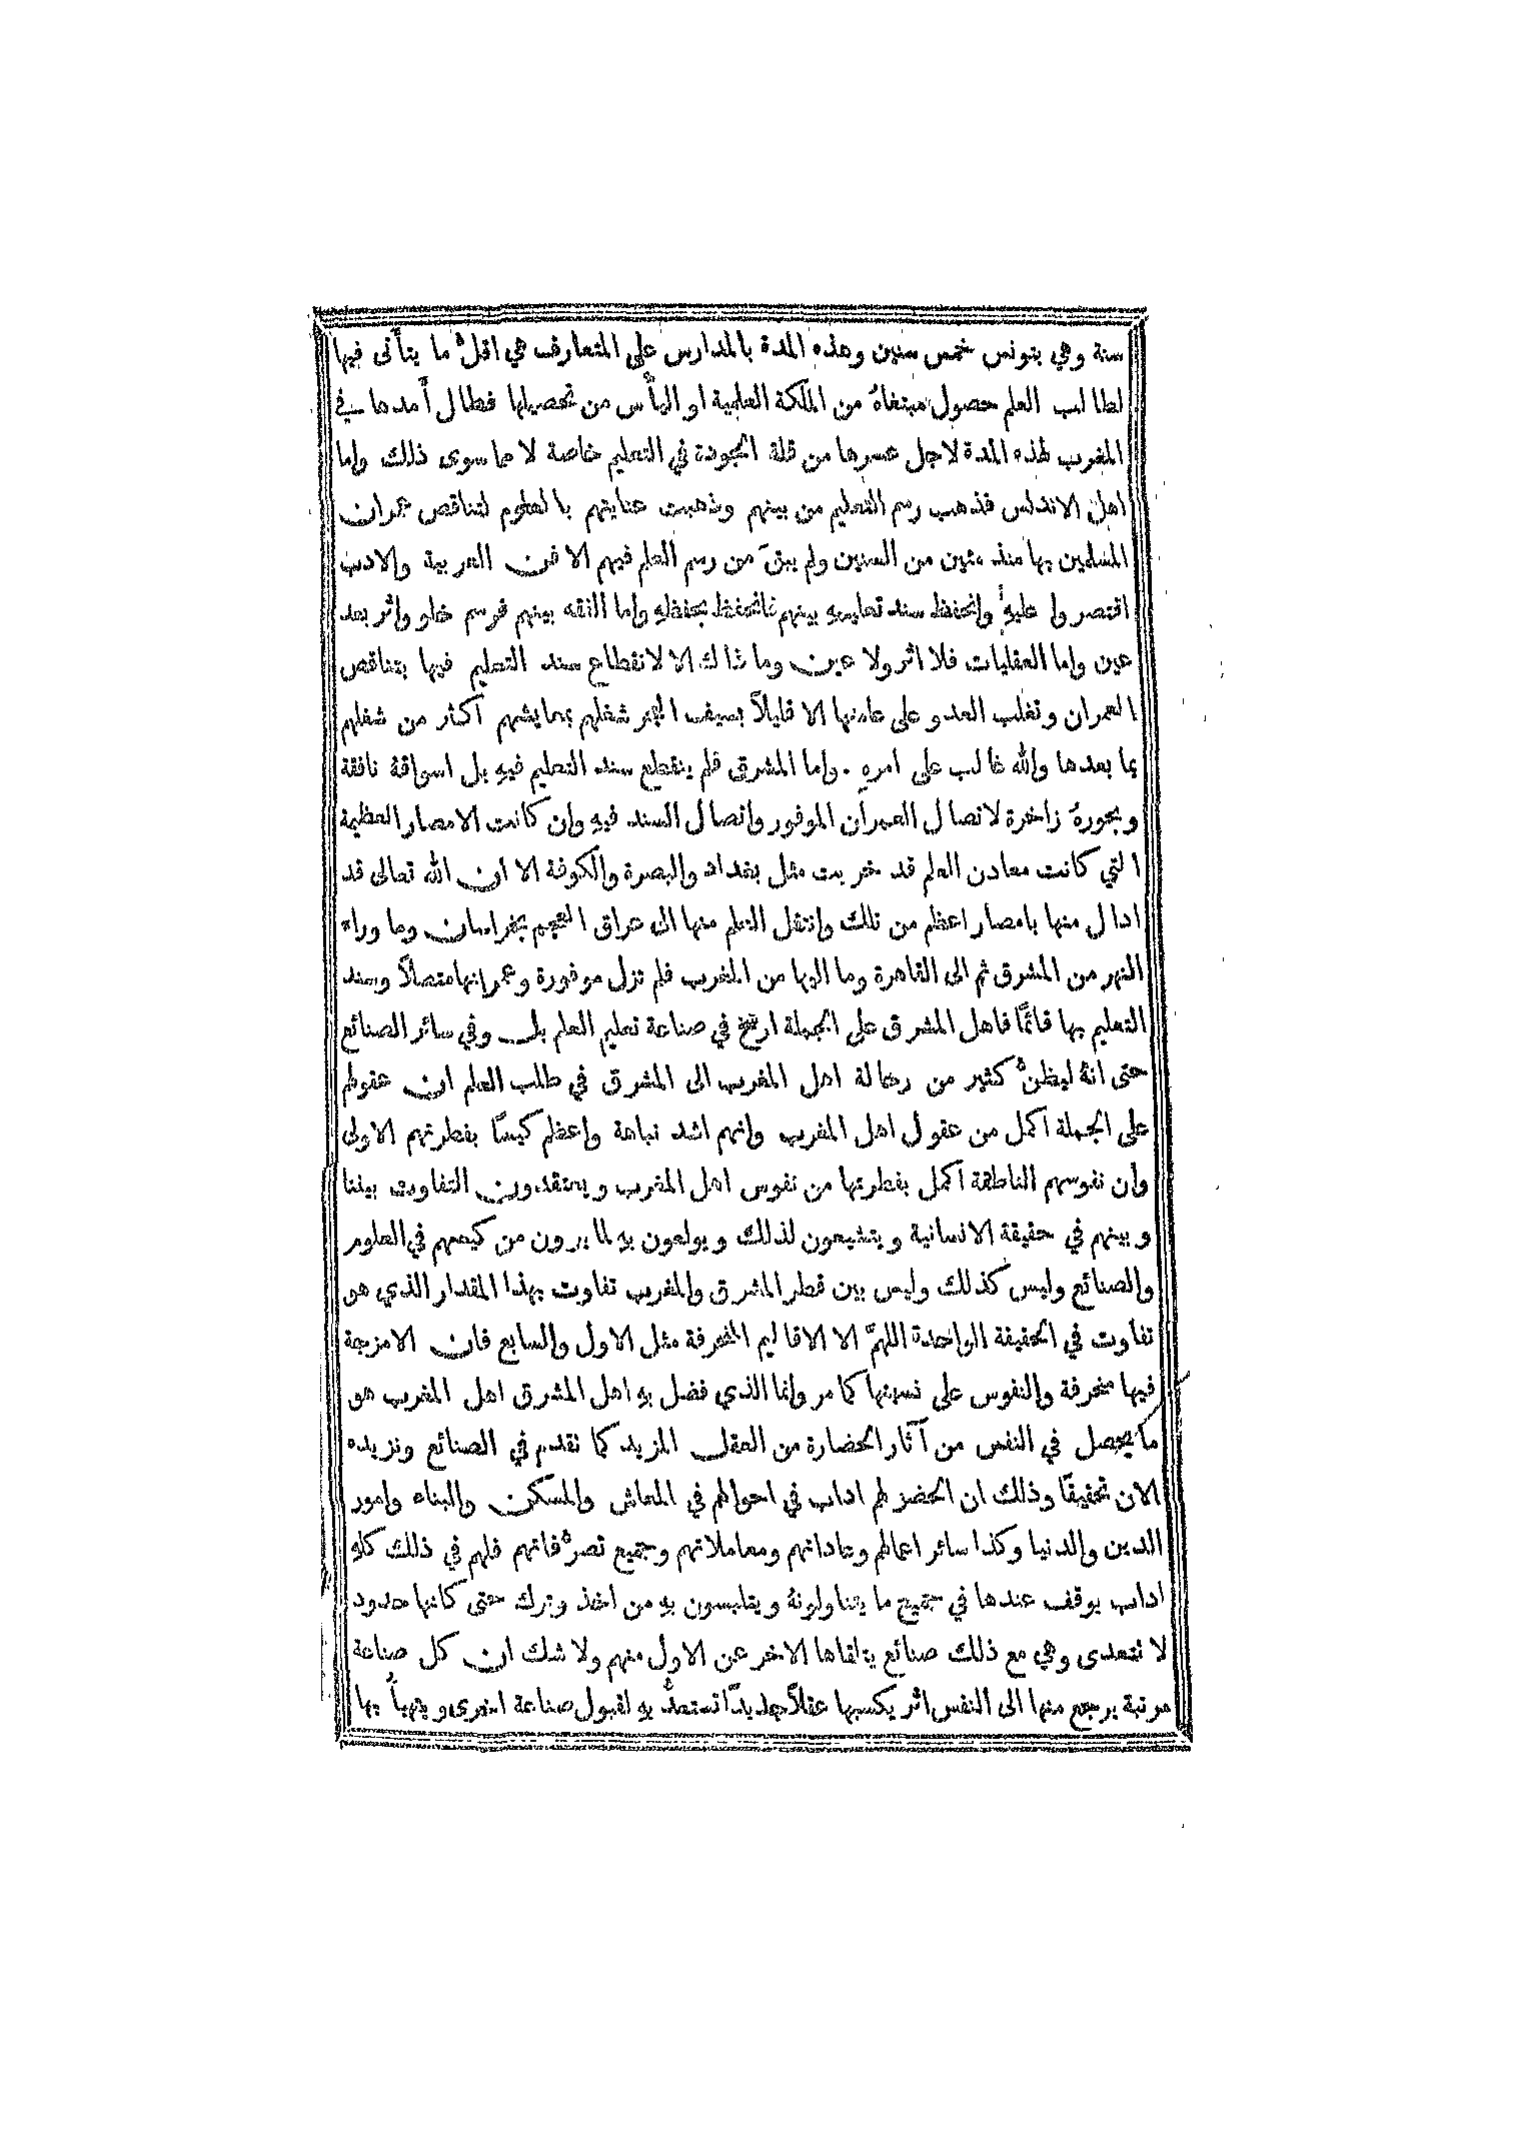 سنة وهي بتونس خمس سنين وهذه المدة بالمدارس على المتعارف هي اقلّ ما يتأتى فيها
لطالب العلم حصول مبتغاهُ من الملكة العلمية او اليأس من تحصيلها فطال أمدها في
المغرب لهذه المدة لاجل عسرها من قلة الجودة في التعليم خاصة لا مما سوى ذلك واما
اهل الاندلس فذهب رسم التعليم من بينهم وذهبت عنايتهم بالعلوم لتناقص عمران
المسلمين بها منذ مئين من السنين ولم يبقَ من رسم العلم فيهم الا فن العربية والادب
اقتصروا عليهِ وانحفظ سند تعليمهِ بينهم فانحفظ بحفظهِ واما الفقه بينهم فرسم خلو واثر بعد
عين واما العقليات فلا اثر ولا عين وما ذاك الا لانقطاع سند التعليم فيها بتناقص
العمران وتغلب العدو على عامتها الا قليلاً بسيف البحر شغلهم بمعايشهم اكثر من شغلهم
بما بعدها والله غالب على امرهِ . واما المشرق فلم ينقطع سند التعليم فيهِ بل اسواقهُ نافقة
وبحورهُ زاخرة لاتصال العمران الموفور واتصال السند فيهِ وان كانت الامصار العظيمة
التي كانت معادن العلم قد خربت مثل بغداد والبصرة والكوفة الا ان الله تعالى قد
ادال منها بامصار اعظم من تلك وانتقل العلم منها الى عراق العجم بخراسان وما وراء
النهر من المشرق ثم الى القاهرة وما اليها من المغرب فلم تزل موفورة وعمرانها متصلاً وسند
التعليم بها قائمًا فاهل المشرق على الجملة ارسخ في صناعة تعليم العلم بل وفي سائر الصنائع
حتى انهُ ليظنُّ كثير من رحالة اهل المغرب الى المشرق في طلب العلم ان عقولهم
على الجملة اكمل من عقول اهل المغرب وانهم اشد نباهة واعظم كيسًا بفطرتهم الاولى
وان نفوسهم الناطقة اكمل بفطرتها من نفوس اهل المغرب ويعتقدون التفاوت بيننا
وبينهم في حقيقة الانسانية ويتشيعون لذلك ويولعون بهِ لما يرون من كيسهم في العلوم
والصنائع وليس كذلك وليس بين قطر المشرق والمغرب تفاوت بهذا المقدار الذي هو
تفاوت في الحقيقة الواحدة اللهمّ الا الاقاليم المنحرفة مثل الاول والسابع فان الامزجة
فيها منحرفة والنفوس على نسبتها كما مر وانما الذي فضل بهِ اهل المشرق اهل المغرب هو
ما يحصل في النفس من آثار الحضارة من العقل المزيد كما تقدم في الصنائع ونزيده
الان تحقيقًا وذلك ان الحضر لهم اداب في احوالهم في المعاش والمسكن والبناء وامور
الدين والدنيا وكذا سائر اعمالهم وعاداتهم ومعاملاتهم وجميع تصرُّفاتهم فلهم في ذلك كلهِ
اداب يوقف عندها في جميع ما يتناولونهُ ويتلبسون بهِ من اخذ وترك حتى كانها حدود
لا تتعدى وهي مع ذلك صنائع يتلقاها الاخر عن الاول منهم ولا شك ان كل صناعة
مرتبة يرجع منها الى النفس اثر يكسبها عقلاً جديدًا تستعدُّ بهِ لقبول صناعة اخرى ويتهيأُ بها